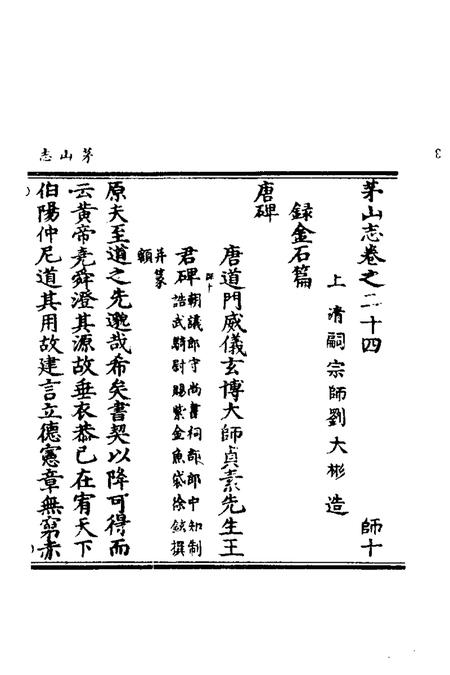 茅山志
3
茅山志卷之二十四 師十
上清嗣宗師劉大彬造
録金石篇
唐碑
唐道門威儀玄博大師貞素先生王
君碑 朝議郎守尚書祠部郎中知制
誥武騎尉賜紫金魚袋徐鉉撰
并篆
額
原夫至道之先邈哉希矣書契以降可得而
云黄帝堯舜澄其源故垂衣恭己在宥天下
伯陽仲尼道其用故建言立德憲章無窮赤